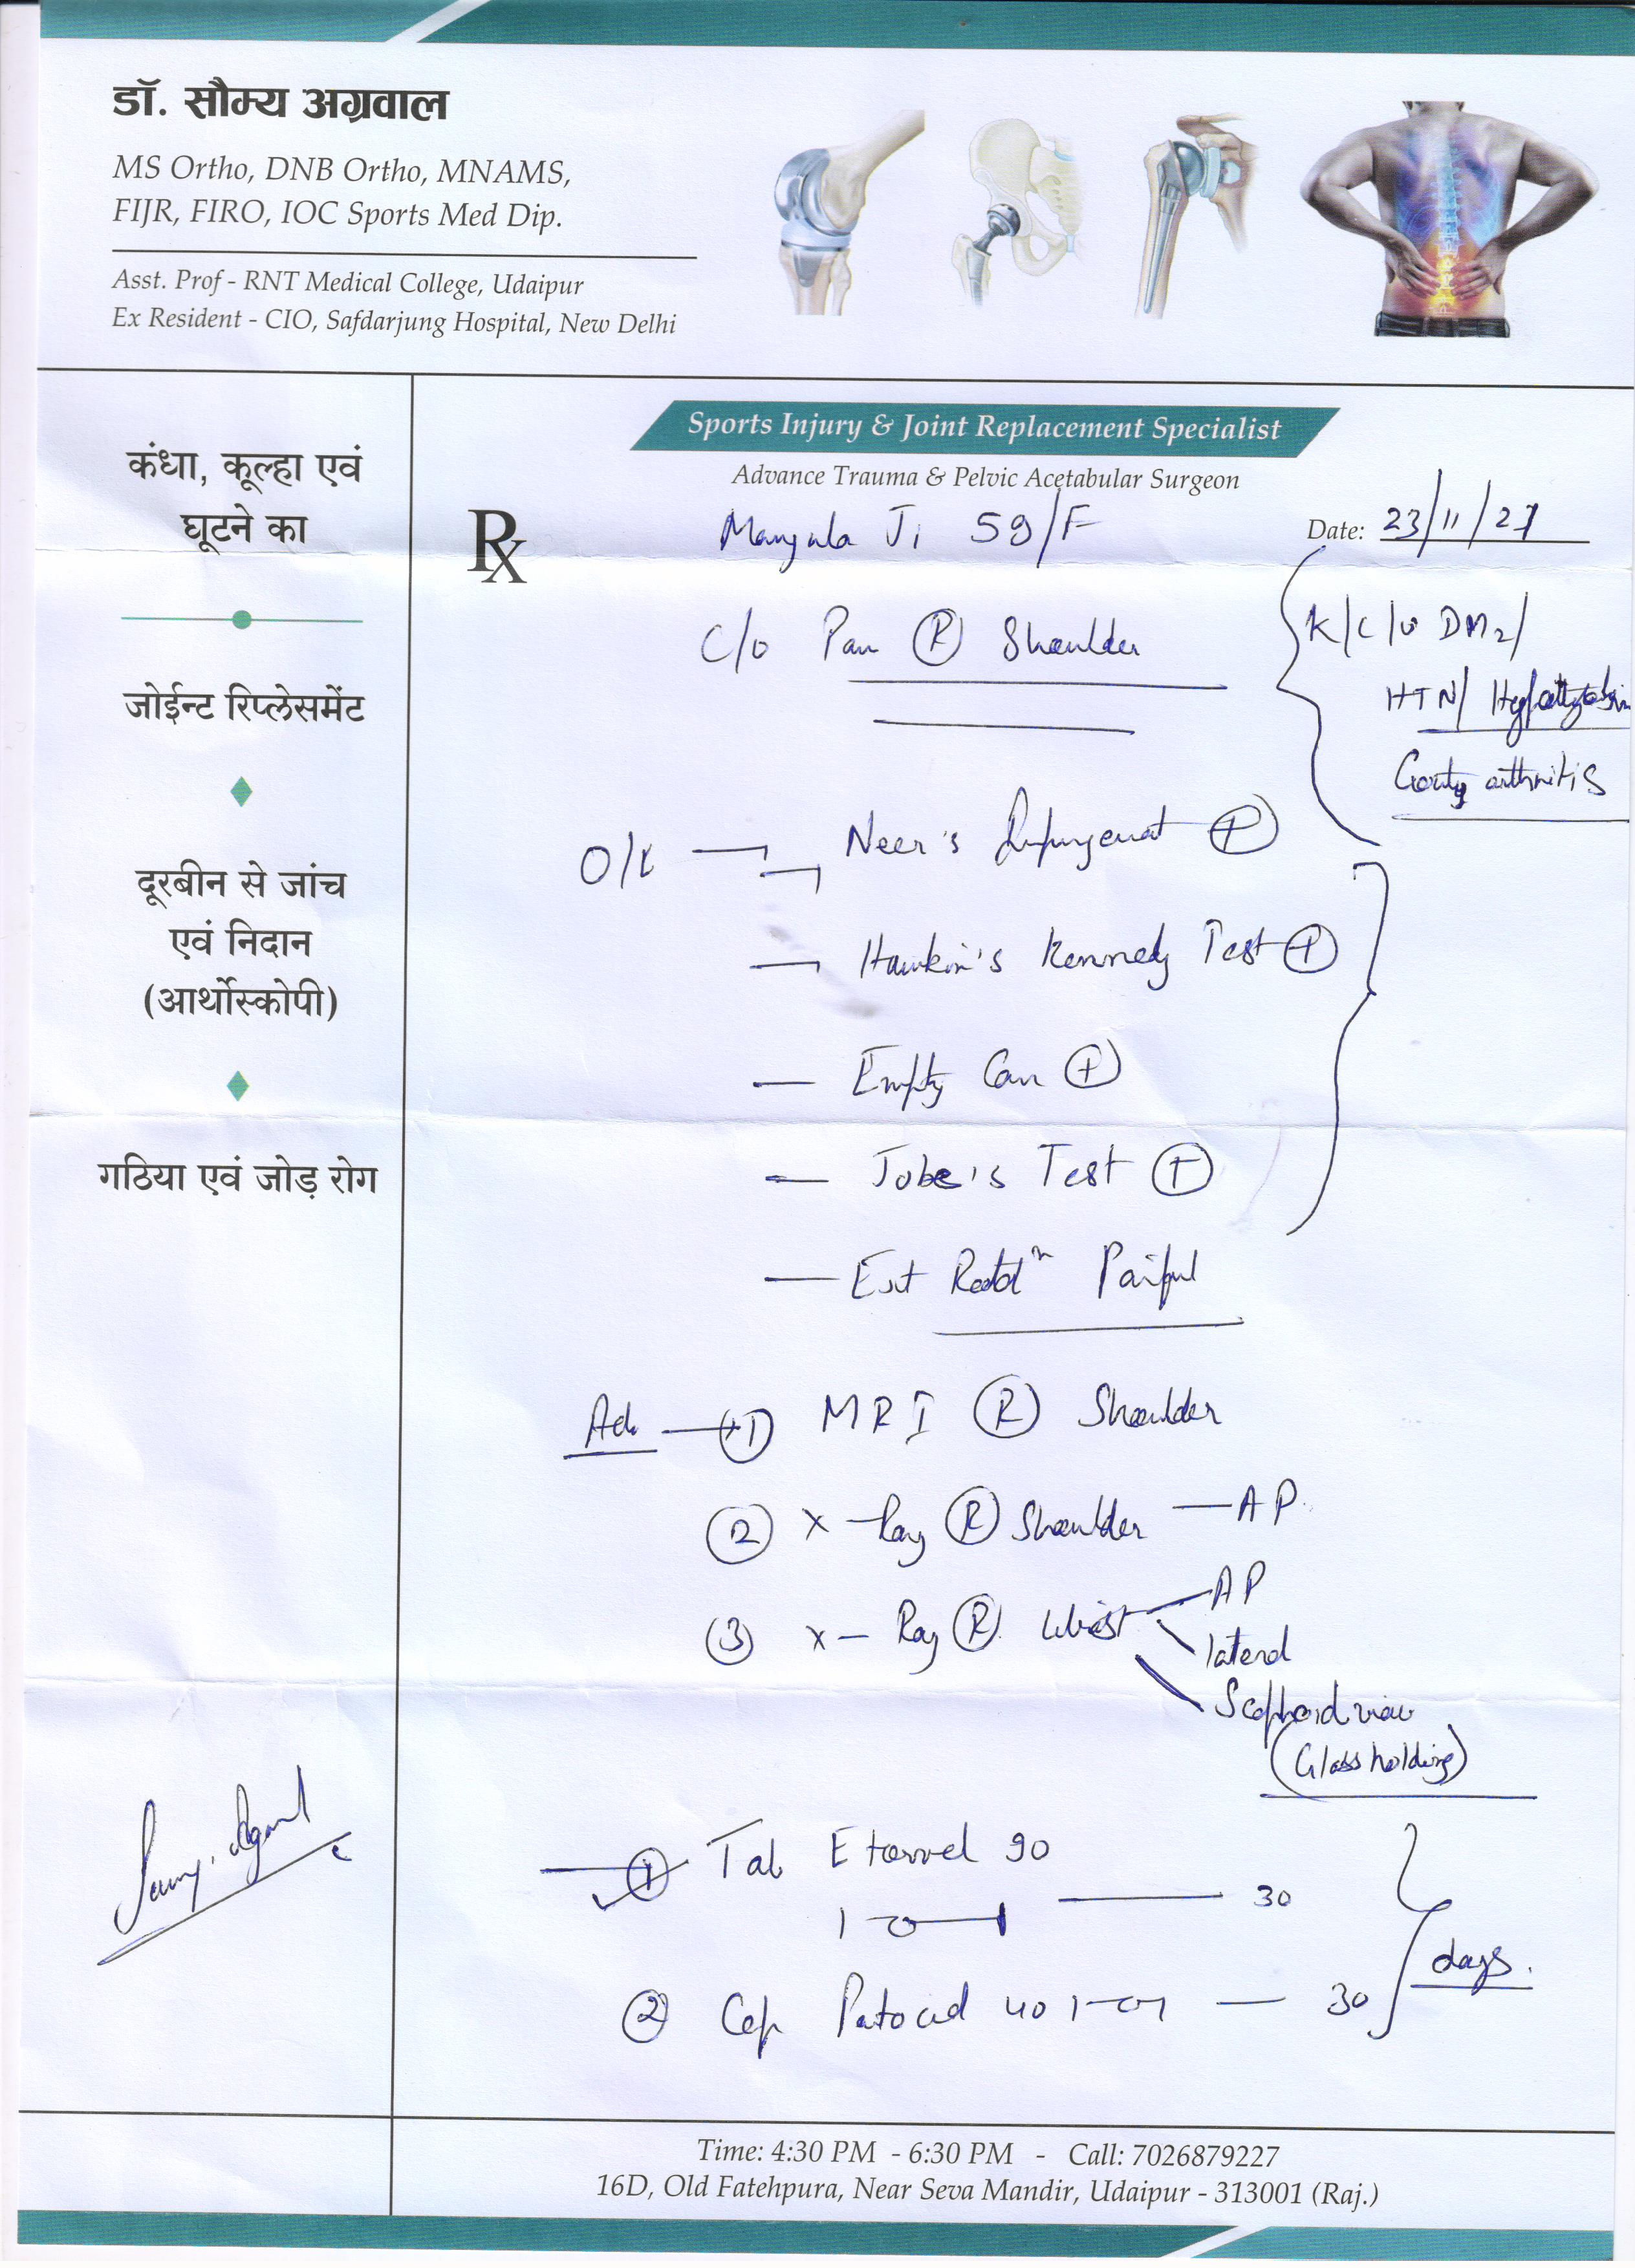 डॉ. सौम्य अग्रवाल
MS Ortho, DNB Ortho, MNAMS,
FIJR, FIRO, IOC Sports Med Dip.
Asst. Prof - RNT Medical College, Udaipur
Ex Resident - CIO, Safdarjung Hospital, New Delhi
कंधा, कूल्हा एवं
घूटने का
जोईन्ट रिप्लेसमेंट
दूरबीन से जांच
एवं निदान
(आर्थोस्कोपी)
गठिया एवं जोड़ रोग
Sports Injury & Joint Replacement Specialist
Advance Trauma & Pelvic Acetabular Surgeon
Rx
Mangala Ji 59/F
Date: 23/11/
C/o Pain (R) Shoulder
K/C/o DM2/
HTN/
Gouty arthritis
O/E Neer's Impingement (+)
— Hawkin's Kennedy Test (+)
— Empty Can (+)
— Jobe's Test (+)
— Ext Rotatn Painful
Adv (1) MRI (R) Shoulder
(2) X-Ray (R) Shoulder — AP
(3) X-Ray (R) Wrist AP
lateral
Scaphoid view
(Glass holding)
(1) Tab 90
1-0-1 — 30
(2) Cap 40 1-0-1 — 30
days.
Time: 4:30 PM - 6:30 PM - Call: 7026879227
16D, Old Fatehpura, Near Seva Mandir, Udaipur - 313001 (Raj.)